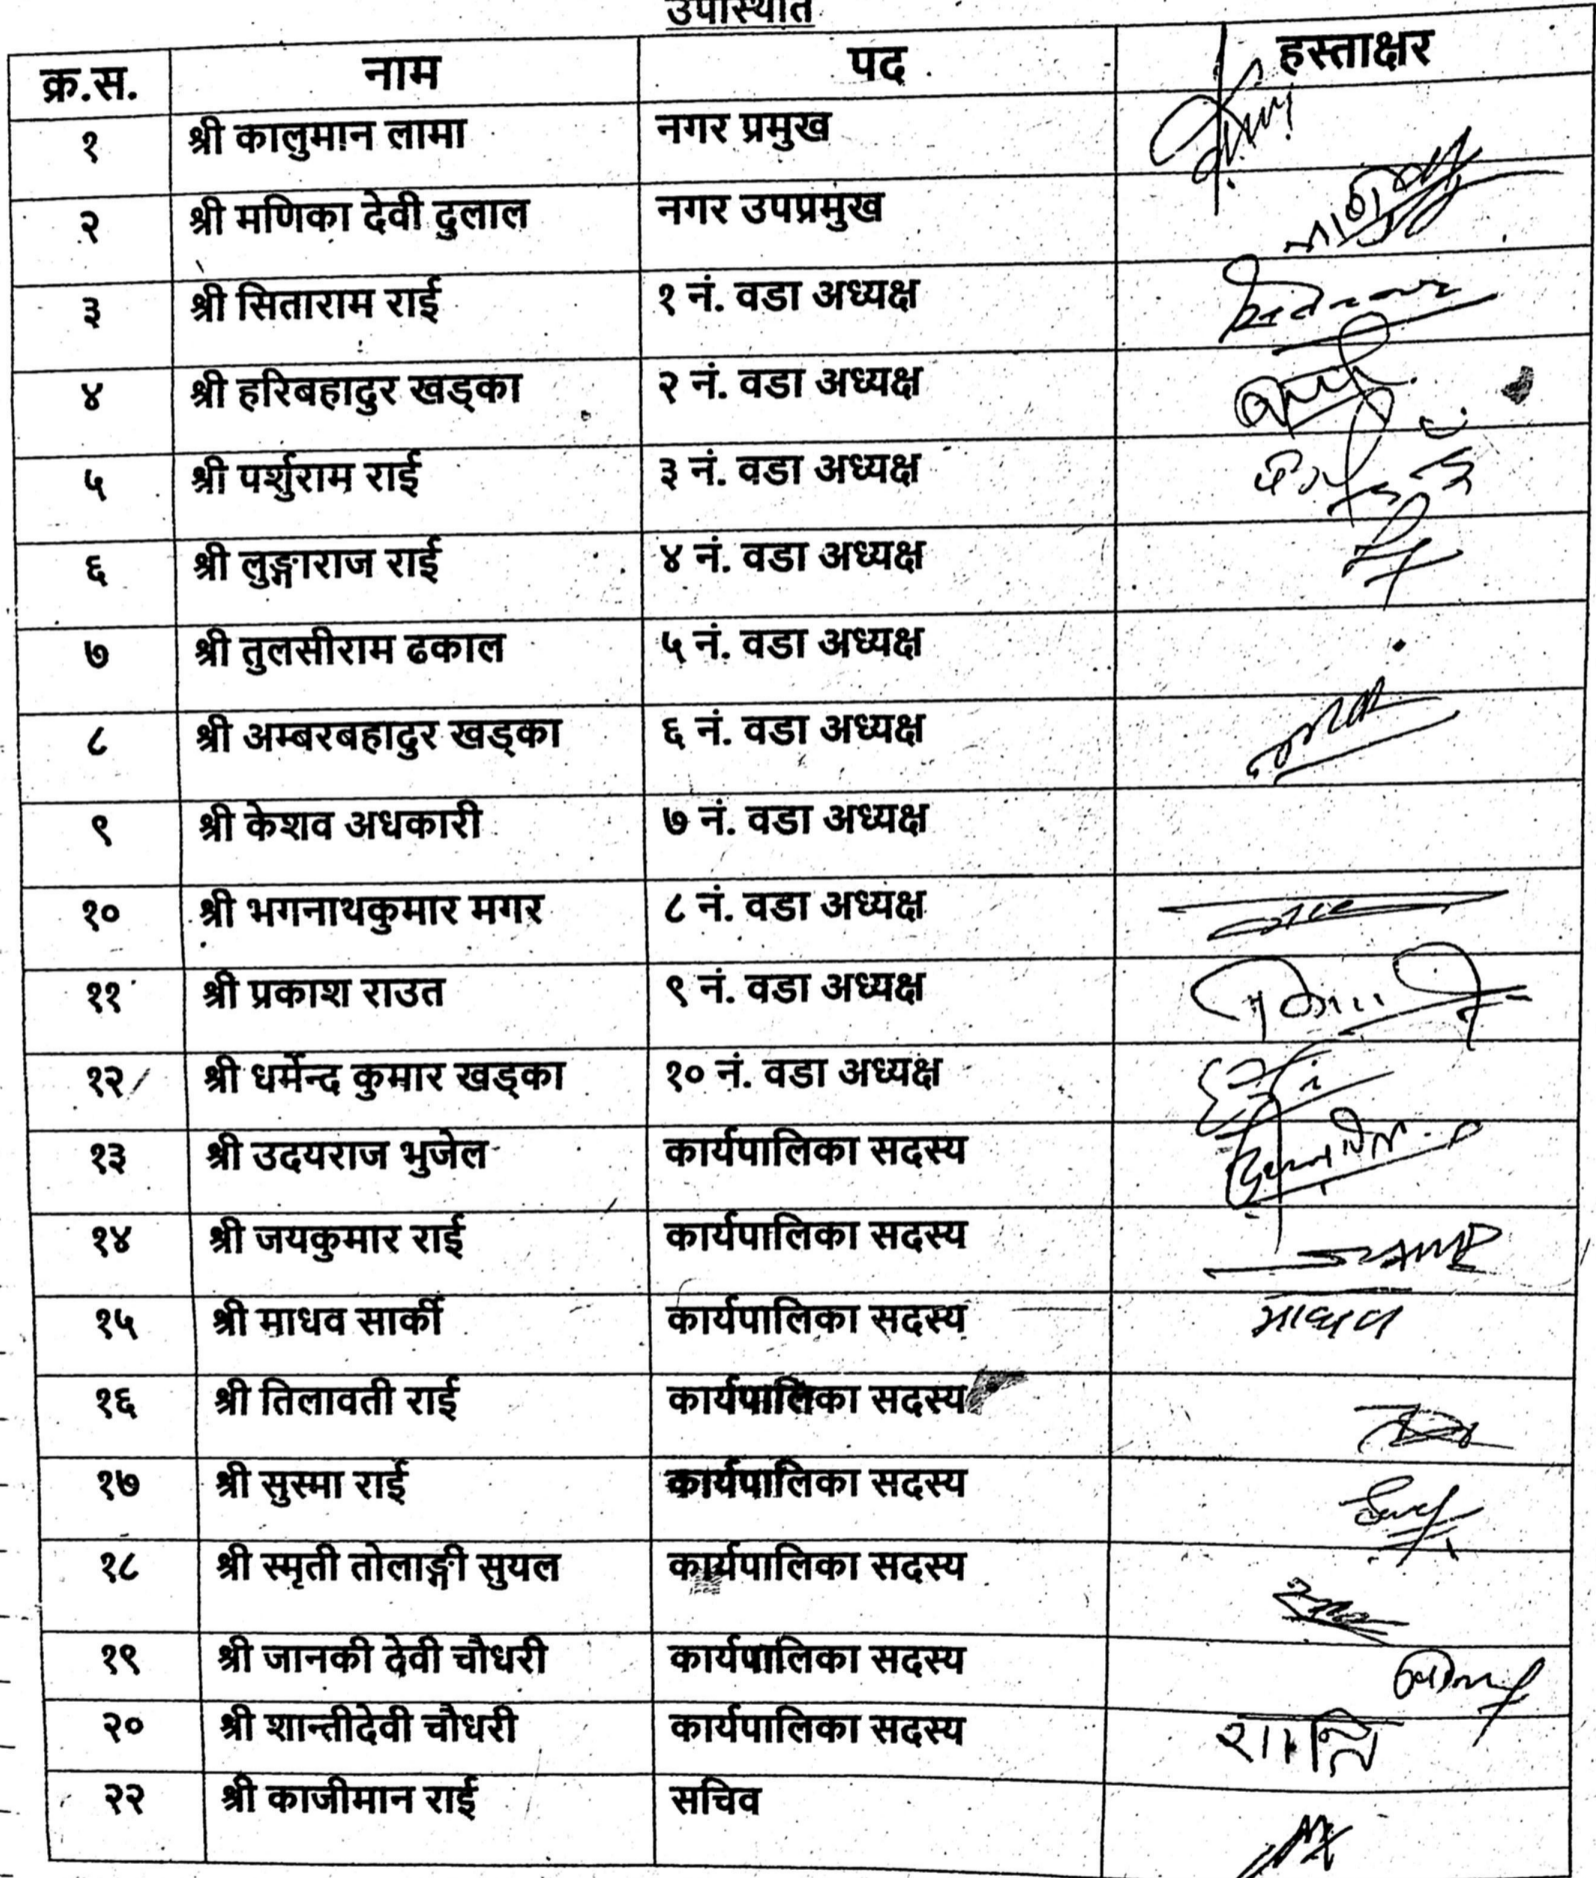 उपस्थिति
क्र.स. नाम पद हस्ताक्षर
१ श्री कालुमान लामा नगर प्रमुख
२ श्री मणिका देवी दुलाल नगर उपप्रमुख
३ श्री सिताराम राई १ नं. वडा अध्यक्ष
४ श्री हरिबहादुर खड्का २ नं. वडा अध्यक्ष
५ श्री पर्शुराम राई ३ नं. वडा अध्यक्ष
६ श्री लुङ्गाराज राई ४ नं. वडा अध्यक्ष
७ श्री तुलसीराम ढकाल ५ नं. वडा अध्यक्ष
८ श्री अम्बरबहादुर खड्का ६ नं. वडा अध्यक्ष
९ श्री केशव अधकारी ७ नं. वडा अध्यक्ष
१० श्री भगनाथकुमार मगर ८ नं. वडा अध्यक्ष
११ श्री प्रकाश राउत ९ नं. वडा अध्यक्ष
१२ श्री धर्मेन्द कुमार खड्का १० नं. वडा अध्यक्ष
१३ श्री उदयराज भुजेल कार्यपालिका सदस्य
१४ श्री जयकुमार राई कार्यपालिका सदस्य
१५ श्री माधव सार्की कार्यपालिका सदस्य माधव
१६ श्री तिलावती राई कार्यपालिका सदस्य
१७ श्री सुस्मा राई कार्यपालिका सदस्य
१८ श्री स्मृती तोलाङ्गी सुयल कार्यपालिका सदस्य
१९ श्री जानकी देवी चौधरी कार्यपालिका सदस्य
२० श्री शान्तीदेवी चौधरी कार्यपालिका सदस्य शान्ति
२२ श्री काजीमान राई सचिव